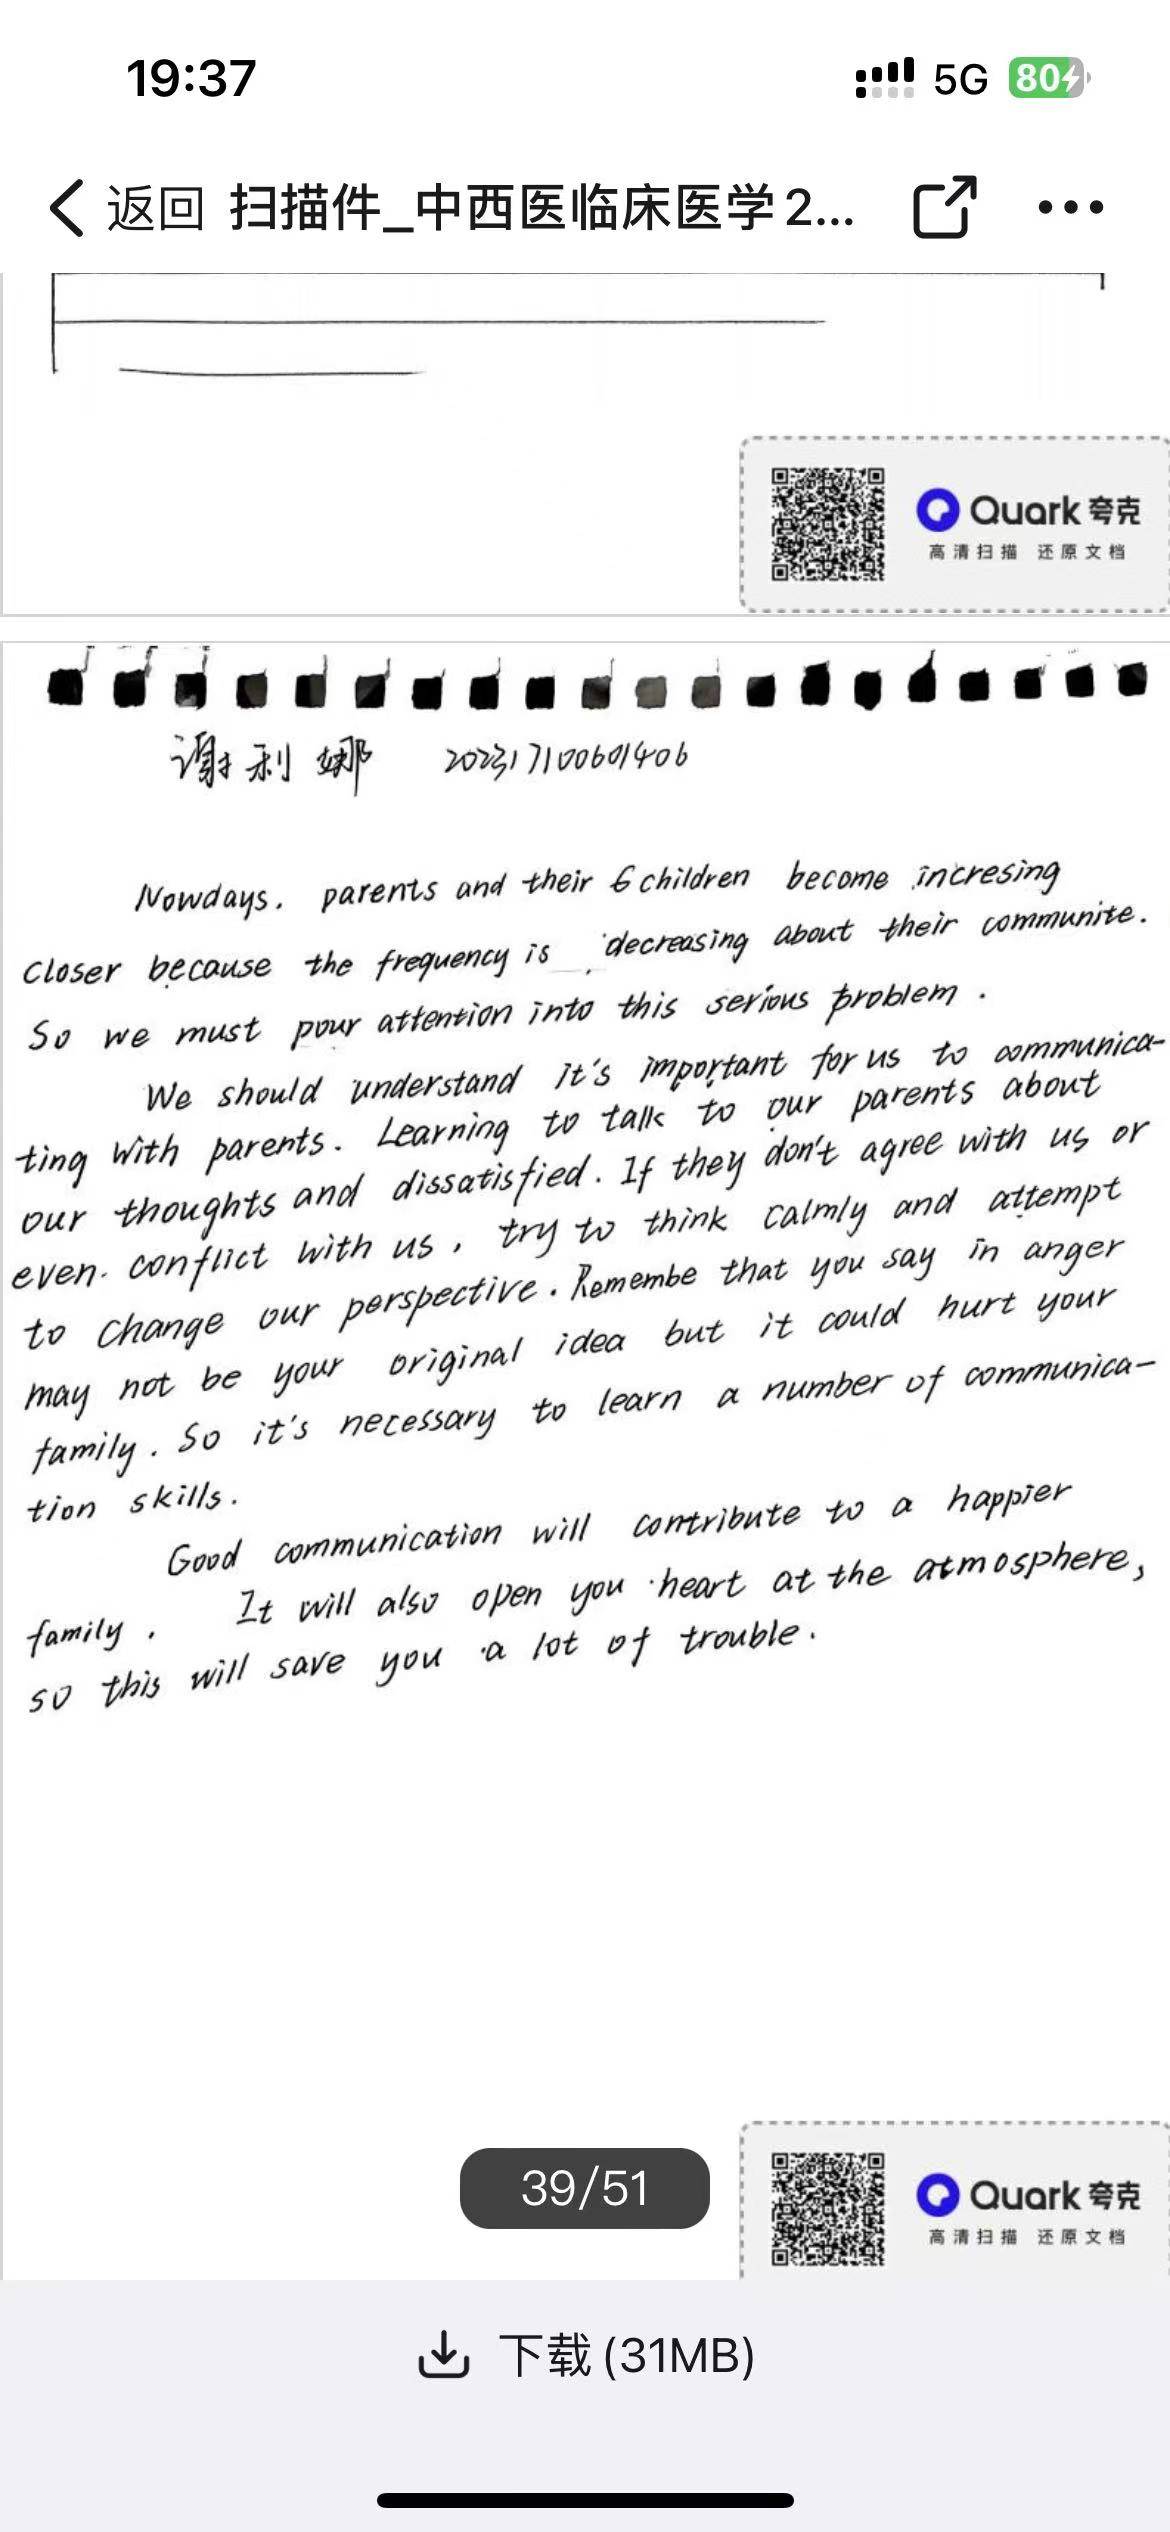 19:37
5G 80
返回 扫描件_中西医临床医学2...
Quark 夸克
高清扫描 还原文档
谢利娜 202317100601406
Nowdays. parents and their 6 children become incresing
closer because the frequency is decreasing about their communite.
So we must pour attention into this serious problem.
We should understand it's important for us to communica-
ting with parents. Learning to talk to our parents about
our thoughts and dissatisfied. If they don't agree with us or
even. conflict with us, try to think calmly and attempt
to change our perspective. Remembe that you say in anger
may not be your original idea but it could hurt your
family. So it's necessary to learn a number of communica-
tion skills.
Good communication will contribute to a happier
family. It will also open you heart at the atmosphere,
so this will save you a lot of trouble.
39/51
Quark 夸克
高清扫描 还原文档
下载 (31MB)